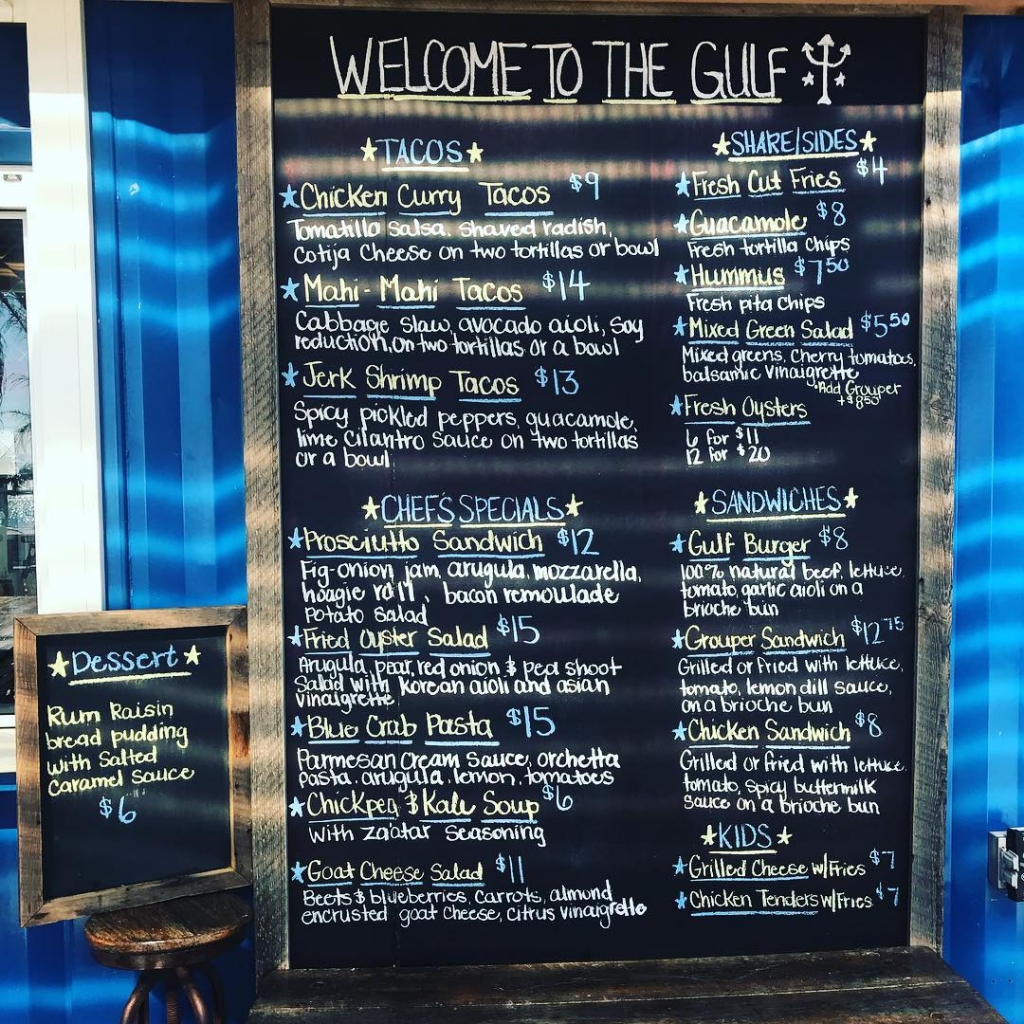 WELCOME TO THE GULF
TACOS
Chicken Curry Tacos $9
Tomatillo salsa, shaved radish,
Cotija Cheese on two tortillas or bowl
Mahi-Mahi Tacos $14
Cabbage slaw, avocado aioli, soy
reduction, on two tortillas or a bowl
Jerk Shrimp Tacos $13
Spicy pickled peppers, guacamole,
lime cilantro sauce on two tortillas
or a bowl
CHEF'S SPECIALS
Prosciutto Sandwich $12
Fig-onion jam, arugula, mozzarella,
hoagie roll, bacon remoulade
Potato salad
Fried Oyster Salad $15
Arugula, pear, red onion & pea shoot
Salad with Korean aioli and asian
vinaigrette
Blue Crab Pasta $15
Parmesan Cream Sauce, orchetta
pasta, arugula, lemon, tomatoes
Chickpea & Kale Soup $6
with za'atar seasoning
Goat Cheese Salad $11
Beets & blueberries, carrots, almond
encrusted goat cheese, citrus vinaigrette
SHARE/SIDES
Fresh Cut Fries $4
Guacamole $8
Fresh tortilla chips
Hummus $7.50
Fresh pita chips
Mixed Green Salad $5.50
Mixed greens, cherry tomatoes,
balsamic vinaigrette
*Add Grouper
+$8.50
Fresh Oysters
6 for $11
12 for $20
SANDWICHES
Gulf Burger $8
100% natural beef, lettuce,
tomato, garlic aioli on a
brioche bun
Grouper Sandwich $12.75
Grilled or fried with lettuce,
tomato, lemon dill sauce,
on a brioche bun
Chicken Sandwich $8
Grilled or fried with lettuce,
tomato, spicy buttermilk
sauce on a brioche bun
KIDS
Grilled Cheese w/Fries $7
Chicken Tenders w/Fries $7
Dessert
Rum Raisin
bread pudding
with Salted
Caramel Sauce
$6